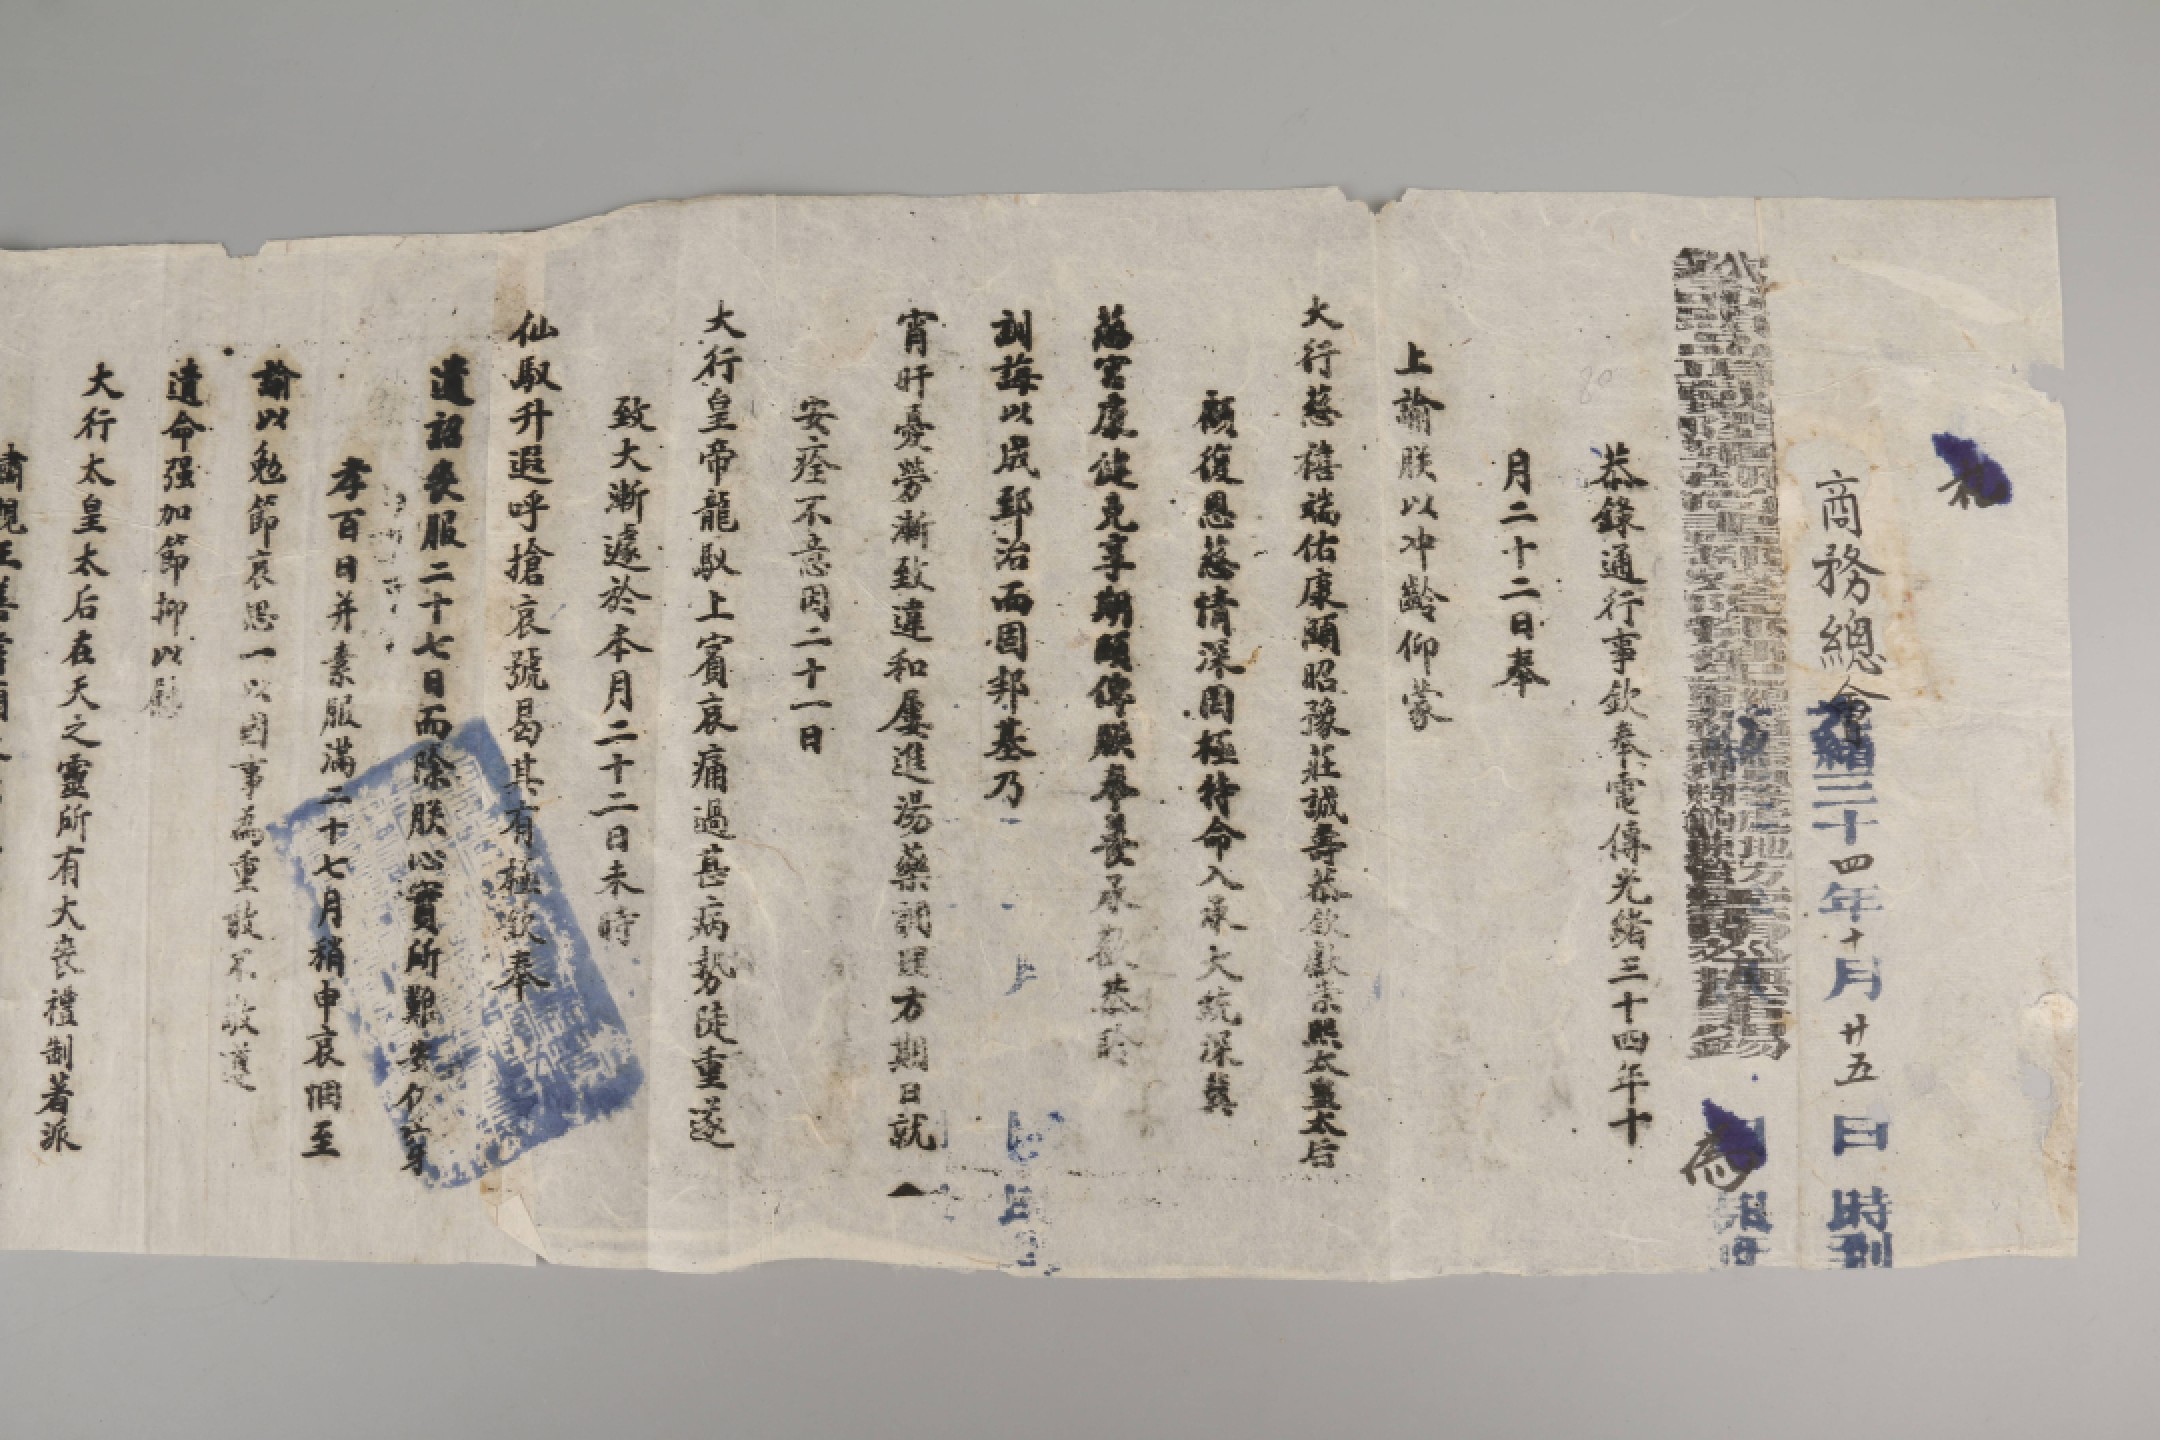 札
商務總會
光緒三十四年十月廿五日 時到
為
恭錄通行事欽奉電傳光緒三十四年十
月二十二日奉
上諭朕以冲齡仰蒙
大行慈禧端佑康頤昭豫莊誠壽恭欽獻崇熙太皇太后
顧復恩慈情深罔極特命入承大統深冀
慈宮康健克享期頤俾朕奉養承歡恭聆
訓誨以成郅治而固邦基乃
宵旰憂勞漸致違和屢進湯藥調理方期日就
安痊不意因二十一日
大行皇帝龍馭上賓哀痛過甚病勢陡重遂
致大漸遽於本月二十二日未時
仙馭升遐呼搶哀號曷其有極欽奉
遺詔喪服二十七日而除朕心實所難安仍穿
孝百日并素服滿二十七月稍申哀悃至
諭以勉節哀思一以國事為重敢不敬遵
遺命强加節抑以慰
大行太皇太后在天之靈所有大喪禮制著派
肅親王善耆